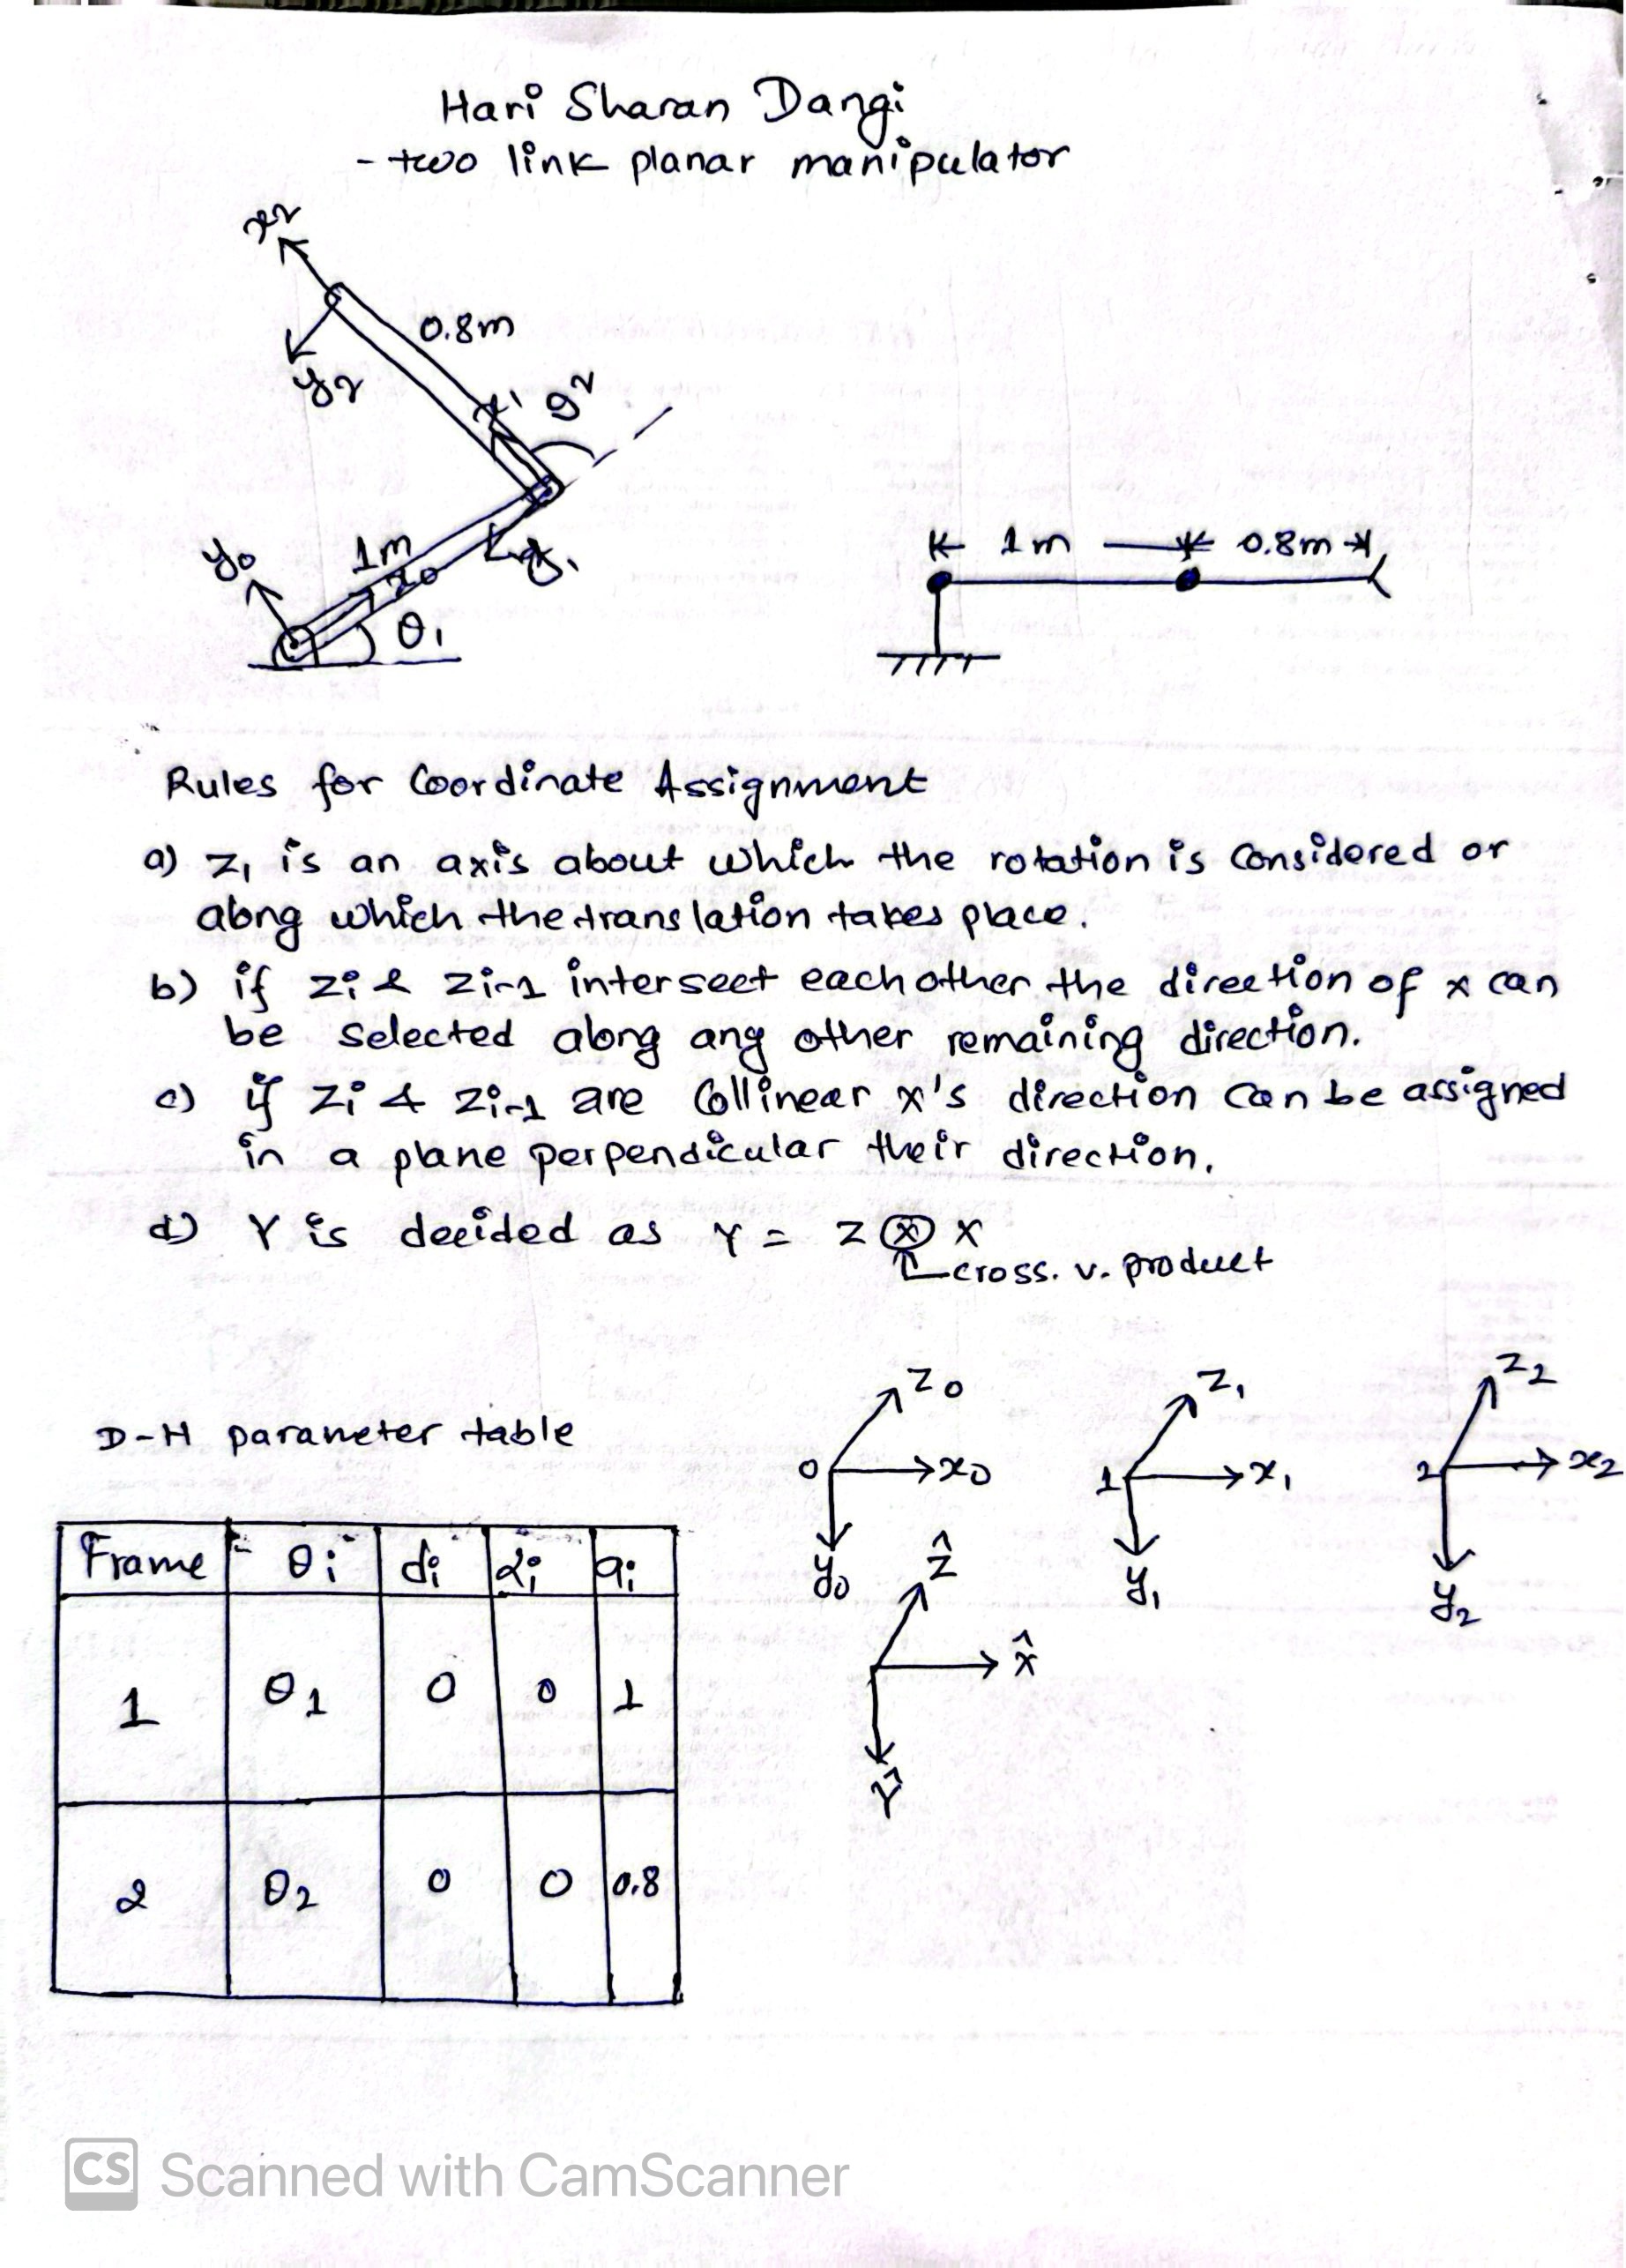 Hari Sharan Dangi
- two link planar manipulator
x2
0.8m
y2
x1
θ2
y0
1m
x0
y1
θ1
1m
0.8m
Rules for Coordinate Assignment
a) z1 is an axis about which the rotation is considered or
along which the translation takes place.
b) if zi & zi-1 intersect each other the direction of x can
be selected along any other remaining direction.
c) if zi & zi-1 are Collinear x's direction can be assigned
in a plane perpendicular their direction.
d) Y is decided as Y = Z ⊗ X
cross. v. product
D-H parameter table
z0
0
x0
y0
z1
1
x1
y1
z2
2
x2
y2
ẑ
x̂
Ŷ
Frame θi di αi ai
1 θ1 0 0 1
2 θ2 0 0 0.8
CS Scanned with CamScanner